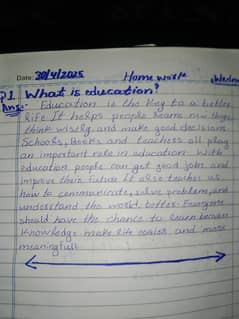 Date: 30/4/2025 Home work
Q1 What is education?
Ans:- Education is the key to a better
life. It helps people learn new things
think wisely, and make good decisions.
Schools, books and teachers all play
an important role in education. With
education people can get good jobs and
improve their future. It also teaches us
how to communicate, solve problems, and
understand the world better. Everyone
should have the chance to learn because
Knowledge make life easier and more
meaningful.